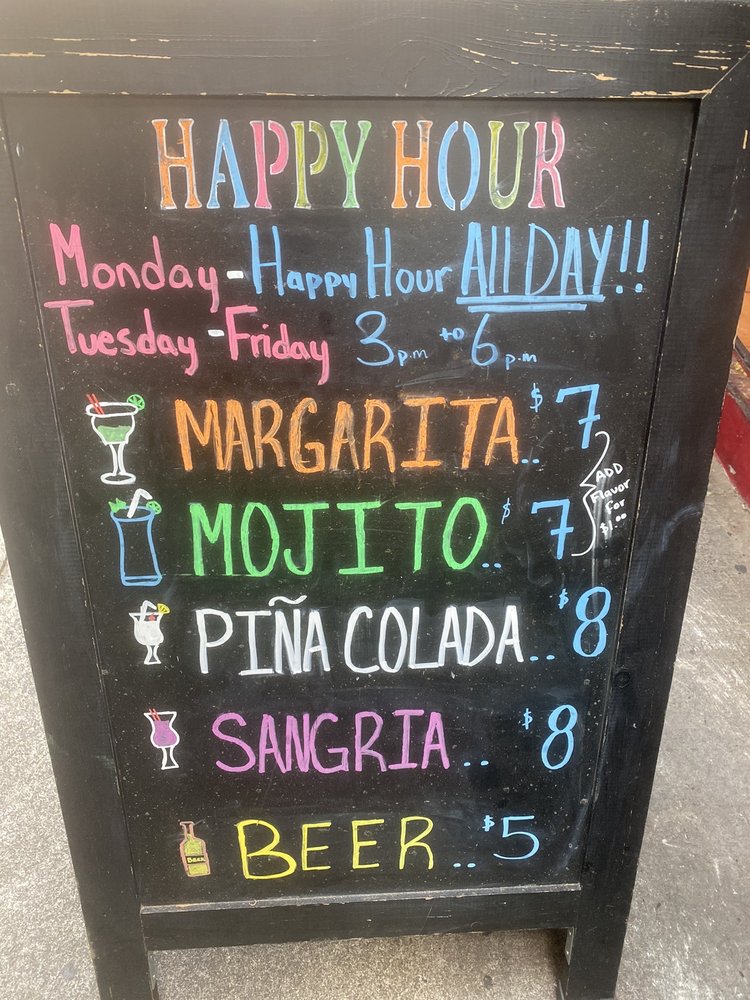 HAPPY HOUR
Monday - Happy Hour All DAY!!
Tuesday - Friday 3p.m to 6p.m
MARGARITA.. $7
MOJITO.. $7
ADD
Flavor
for
$1.00
PIÑA COLADA.. $8
SANGRIA.. $8
BEER.. $5
BEER